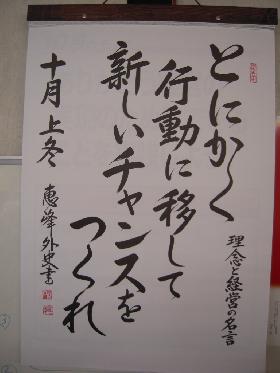 とにかく
理念と経営の名言
行動に移して
新しいチャンスを
つくれ
十月上冬
惠峰外史書